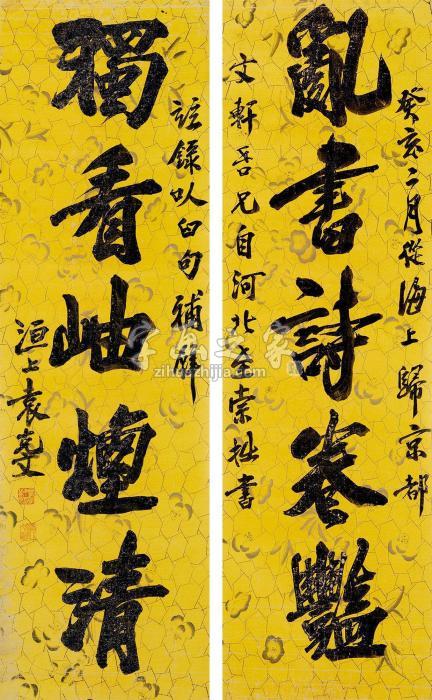 癸亥二月從海上歸京都
亂書詩卷豔
文軒吾兄自河北至索拙書
錄以臼句補
獨看岫煙清
洹上袁克文
字画之家
zihuazhijia.com